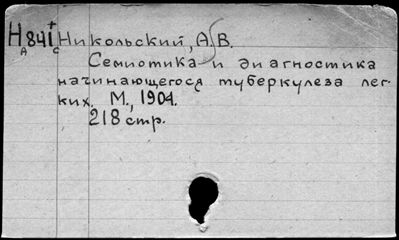 Н841+ Никольский, А. В.
А с
Семиотика и диагностика
начинающегося туберкулеза лег-
ких. М., 1904.
218 стр.